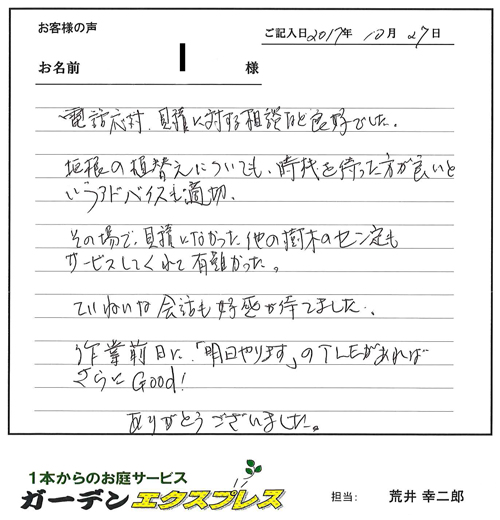 お客様の声
ご記入日2017年 10月 27日
お名前 様
電話応対、見積に対する相談など良好でした。
垣根の植替えについても、時機を待った方が良いと
いうアドバイスも適切。
その場で、見積になかった他の樹木のセン定も
サービスしてくれて有難かった。
ていねいな会話も好感が持てました。
作業前日に、「明日やります」のTLEがあれば
さらにGood!
ありがとうございました。
1本からのお庭サービス
ガーデンエクスプレス
担当: 荒井 幸二郎